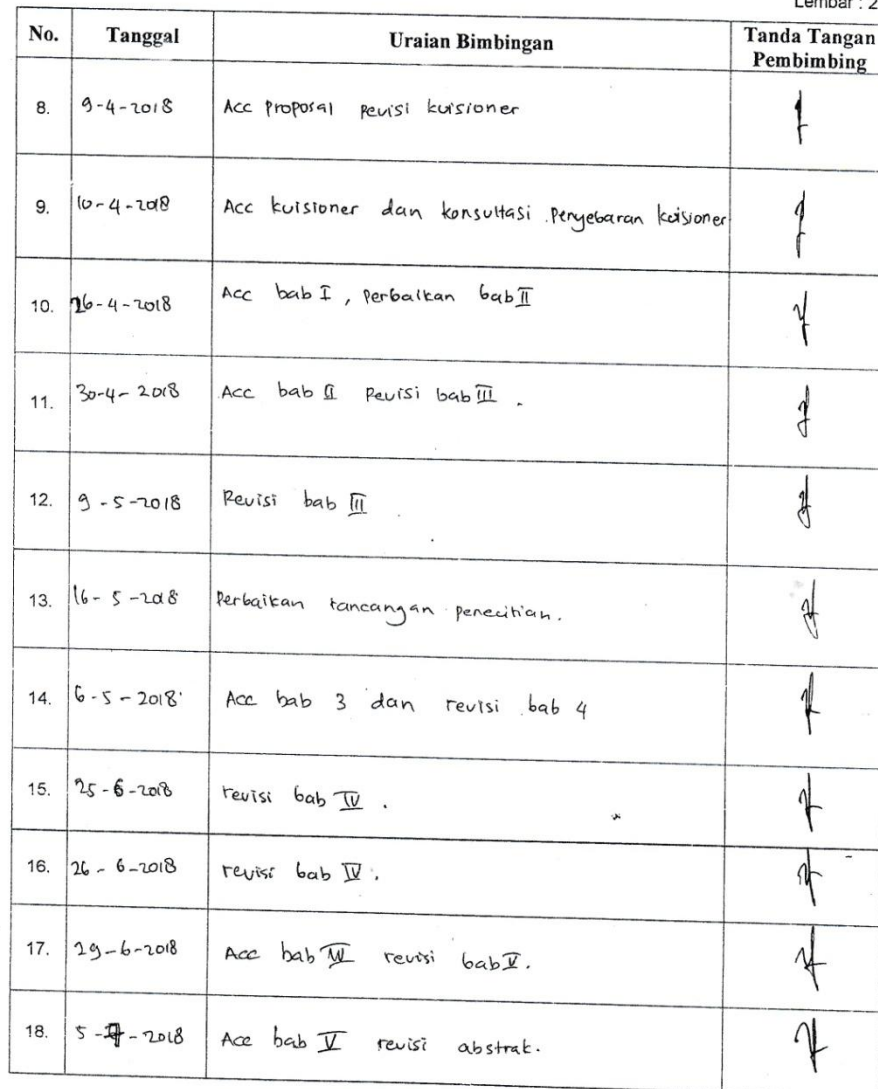 Lembar : 2
No. Tanggal Uraian Bimbingan Tanda Tangan
Pembimbing
8. 9-4-2018 Acc proposal revisi kuisioner
9. 10-4-2018 Acc kuisioner dan konsultasi penyebaran kuisioner
10. 26-4-2018 Acc bab I, perbaikan bab II
11. 30-4-2018 Acc bab II revisi bab III.
12. 9-5-2018 Revisi bab III
13. 16-5-2018 Perbaikan rancangan penelitian.
14. 6-5-2018 Acc bab 3 dan revisi bab 4
15. 25-6-2018 revisi bab IV.
16. 26-6-2018 revisi bab IV.
17. 29-6-2018 Acc bab IV revisi bab V.
18. 5-7-2018 Acc bab V revisi abstrak.